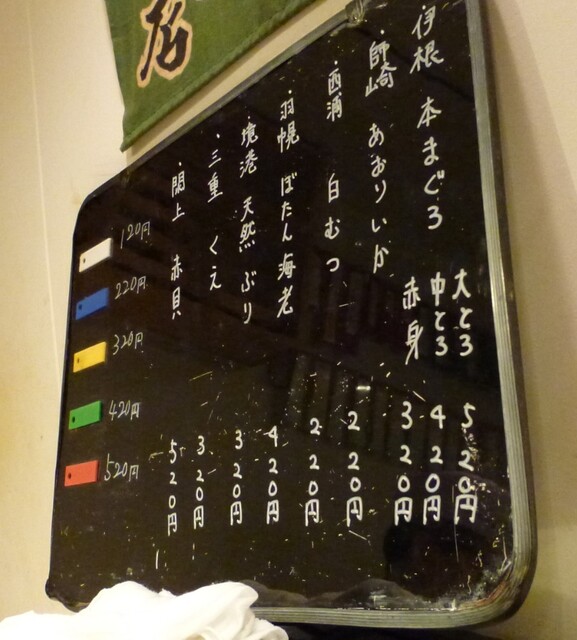 店
・伊根 本まぐろ 大とろ 520円
中とろ 420円
赤身 320円
・師崎 あおりいか 220円
・西浦 白むつ 220円
・羽幌 ぼたん海老 420円
・境港 天然ぶり 320円
・三重 くえ 320円
・閖上 赤貝 520円
120円
220円
320円
420円
520円